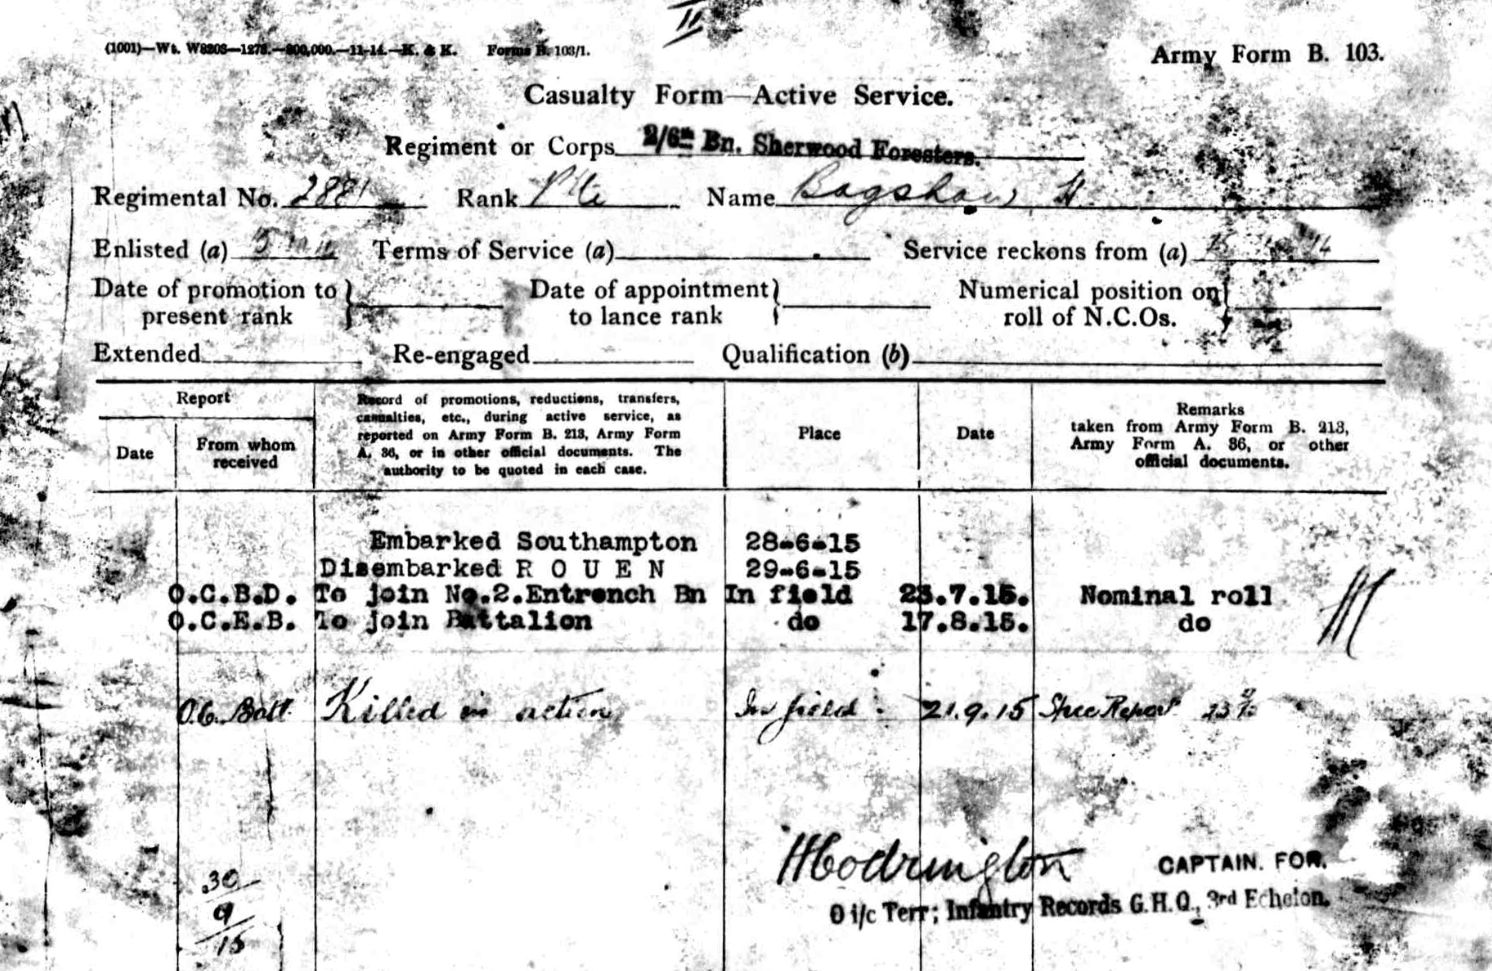 II
(1001)—Wt. W8208—1278.—800,000.—11-14.—K. & K. Forms B. 103/1.
Army Form B. 103.
Casualty Form—Active Service.
Regiment or Corps 2/6th Bn. Sherwood Foresters.
Regimental No. 2881 Rank Pte Name Bagshaw H.
Enlisted (a) Terms of Service (a) Service reckons from (a) 14
Date of promotion to present rank } Date of appointment to lance rank } Numerical position on roll of N.C.Os. }
Extended Re-engaged Qualification (b)
Report
Date
From whom received
Record of promotions, reductions, transfers,
casualties, etc., during active service, as
reported on Army Form B. 213, Army Form
A. 36, or in other official documents. The
authority to be quoted in each case.
Place
Date
Remarks
taken from Army Form B. 213,
Army Form A. 36, or other
official documents.
Embarked Southampton 28-6-15
Disembarked R O U E N 29-6-15
O.C.B.D. To join No.2.Entrench Bn In field 23.7.15. Nominal roll
O.C.E.B. To join Battalion do 17.8.15. do
O.C. Batt. Killed in action In field. 21.9.15 Report
HCodrington
CAPTAIN. FOR.
O i/c Terr; Infantry Records G.H.Q., 3rd Echelon.
30
9
15